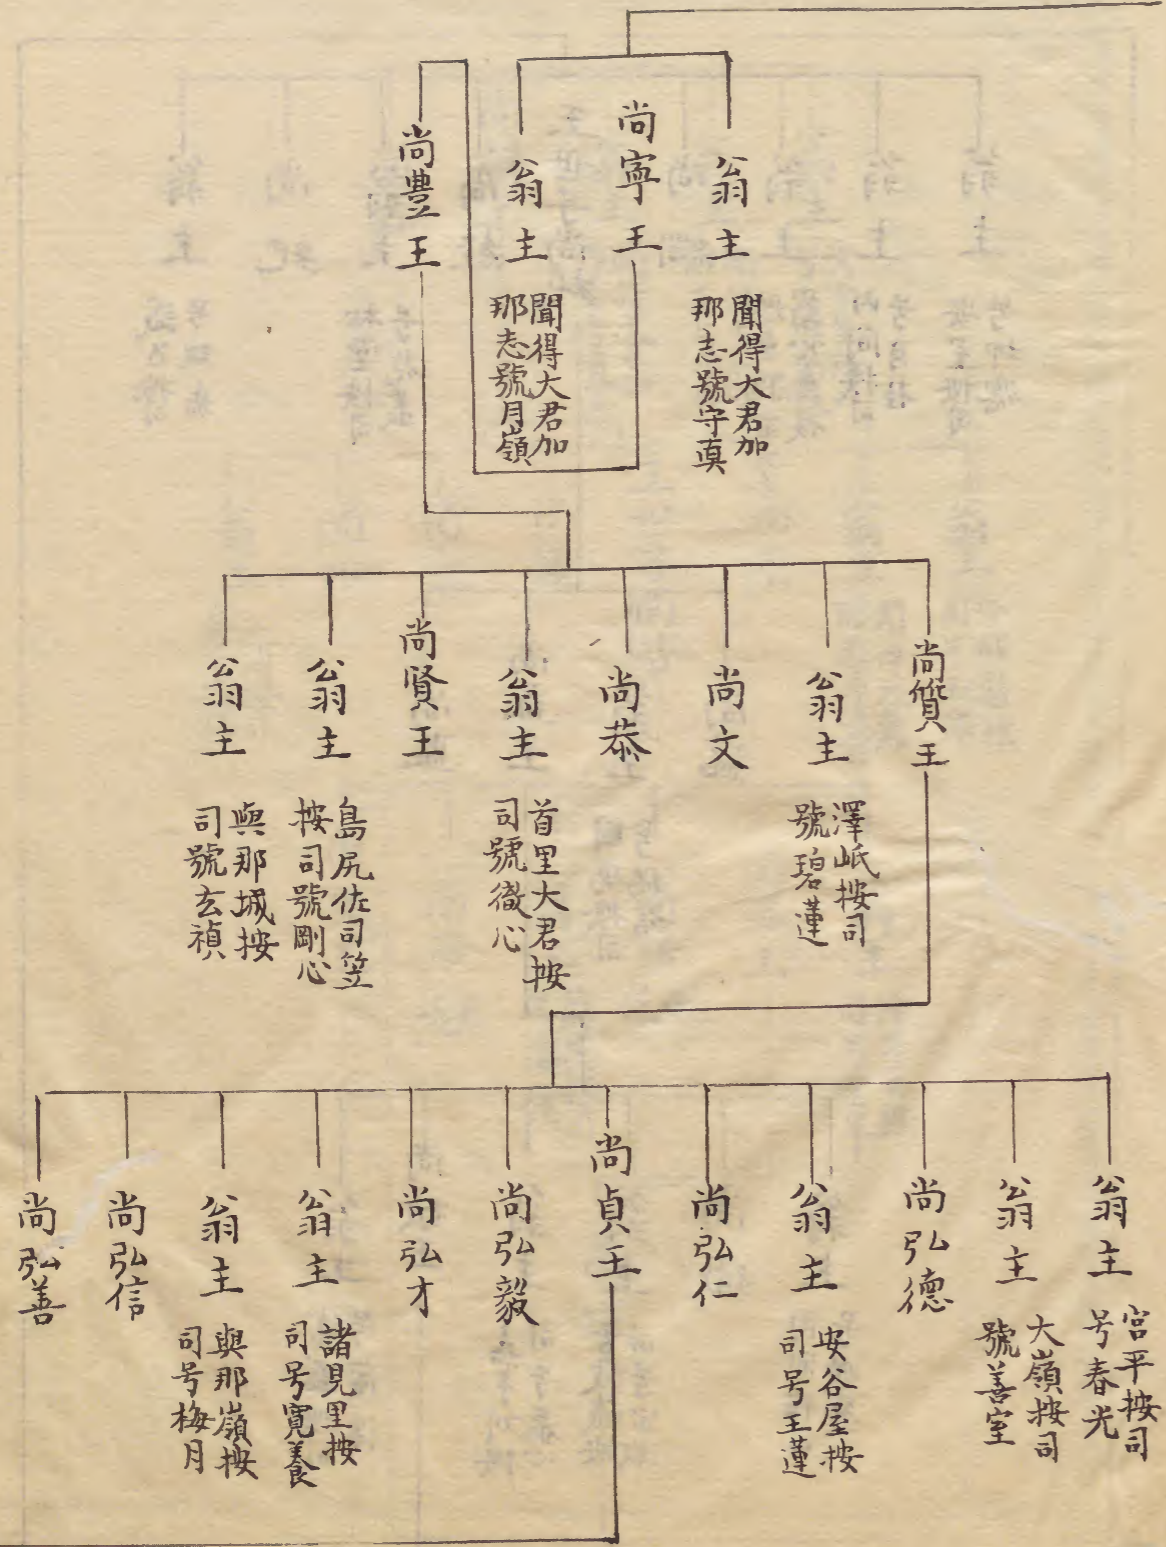 翁主
聞得大君加
那志號守真
尚寧王
翁主
聞得大君加
那志號月嶺
尚豐王
尚質王
翁主
澤岻按司
號碧蓮
尚文
尚恭
翁主
首里大君按
司號徹心
尚賢王
翁主
島尻佐司笠
按司號剛心
翁主
與那城按
司號玄禎
翁主
宮平按司
号春光
翁主
大嶺按司
號善室
尚弘德
翁主
安谷屋按
司号王蓮
尚弘仁
尚貞王
尚弘毅
尚弘才
翁主
諸見里按
司号寬養
翁主
與那嶺按
司号梅月
尚弘信
尚弘善